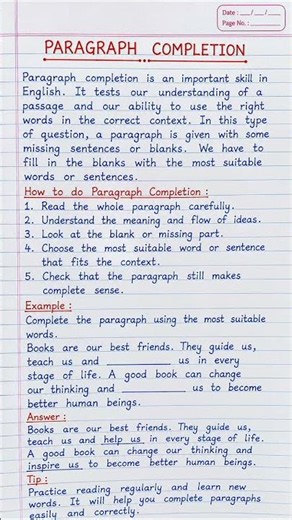 Date : ___/___/___
Page No. : ________
PARAGRAPH COMPLETION
Paragraph completion is an important skill in
English. It tests our understanding of a
passage and our ability to use the right
words in the correct context. In this type
of question, a paragraph is given with some
missing sentences or blanks. We have to
fill in the blanks with the most suitable
words or sentences.
How to do Paragraph Completion :
1. Read the whole paragraph carefully.
2. Understand the meaning and flow of ideas.
3. Look at the blank or missing part.
4. Choose the most suitable word or sentence
that fits the context.
5. Check that the paragraph still makes
complete sense.
Example :
Complete the paragraph using the most suitable
words.
Books are our best friends. They guide us,
teach us and __________ us in every
stage of life. A good book can change
our thinking and __________ us to become
better human beings.
Answer :
Books are our best friends. They guide us,
teach us and help us in every stage of life.
A good book can change our thinking and
inspire us to become better human beings.
Tip :
Practice reading regularly and learn new
words. It will help you complete paragraphs
easily and correctly.